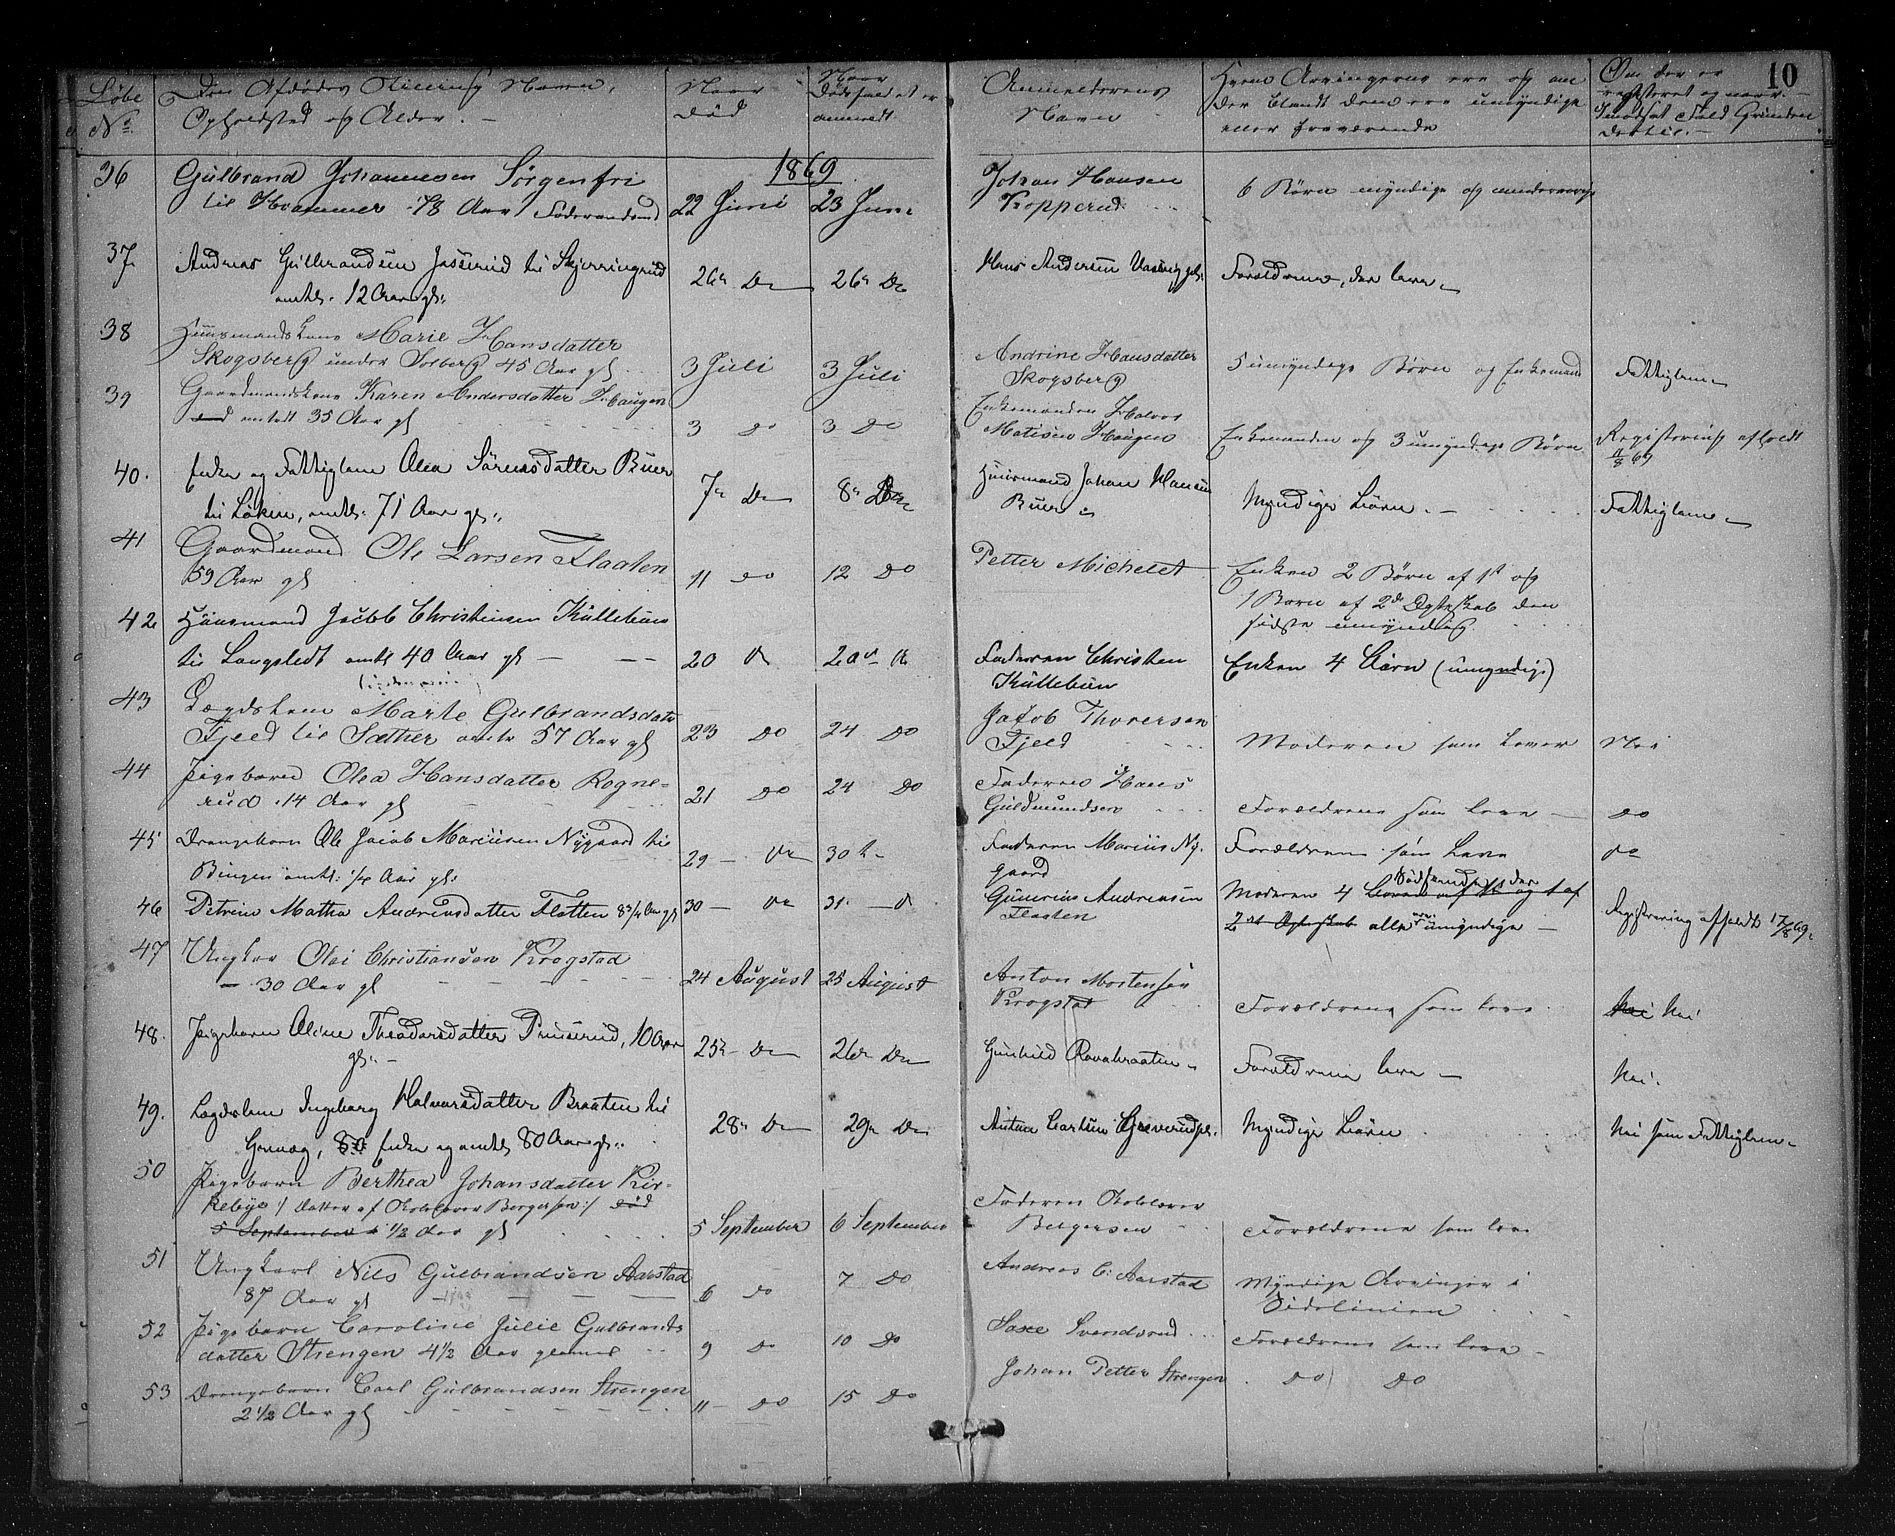 10
Løbe No
Den Afdødes Stilling Navn, Opholdsted og Alder. -
Naar død
Naar Dødsfaldet er anmeldt
Anmelderens Navn
Hvem Arvingerne ere og om der blandt dem ere umyndige eller fraværende
Om der er registreret og naar. I modsat Fald Grunden dertil. -
1869
36 Gulbrand Johannesen Sørgenfri
til Hvammer 78 Aar Føderaadsmd 22 Juni 23 Juni Johan Hansen Kropperud 6 Børn myndige og
37 Andreas Gulbrandsen Jasserud til Skjerringrud
omtr. 12 Aar gl. 26de Do 26de Do Hans Andersen Forældrene, der leve
38 Huusmandskone Marie Hansdatter
Skogsberg under Sorberg 45 Aar gl 3 Juli 3 Juli Andrine Hansdatter Skogsberg 5 umyndige Børn og Enkemand Fattiglem
39 Gaardmandskone Karen Andersdatter Haugen
omtrdt 35 Aar gl 3 do 3 do Enkemanden Halvor Matisen Haugen Enkemanden og 3 umyndige Børn Registrering afholdt 11/8 69
40. Enke og Fattiglem Olea Sørensdatter Buer
til Løken, omtr. 71 Aar gl. 7de Do 8de Do Huusmand Johan Hansen Buer Myndige Børn. - Fattiglem
41 Gaardmand Ole Larsen Flaaten
59 Aar gl 11 do 12 do Petter Michelet Enken 2 Børn af 1st og
1 Barn af 2de Ægteskab den
sidste umyndig
42 Huusmand Jacob Christensen Kullebun
til Langstedt omtr 40 Aar gl 20 do 20de do Faderen Christen Kullebun Enken 4 Børn (umyndige)
43 Lægdslem Marte Gulbrandsdatr
Fjeld til Sæther omtr 57 Aar gl 23 do 24 do Jakob Thoresen Fjeld Moderen som lever Nei
44 Pigebarn Olea Hansdatter Rogne=
rud 14 Aar gl 21 do 24 do Faderen Hans Guldmundsen Forældrene som leve do
45 Drengebarn Ole Jacob Mariusen Nygaard til
Bingen omtr. Aar gl. 29 do 30 Faderen Marius Ny-
gaard Forældrene som leve do
46 Petrine Mathea Andreasdatter Flatten 8 3/4 Aar gl 30 do 31 do Gunerius Andreasen Flaaten Moderen 4 Sødskende der
Børn af 1st og 1 af
2det Ægteskab alle ere umyndige Registrering afholdt 17/8 69.
47 Ungkar Olei Christiansen Krogstad
30 Aar gl 24 August 25 August Anton Mortensen Krogstat Forældrene som leve Nei Nei
48. Pigebarn Oline Theodorsdatter Pruserud, 10 Aar
gl. 25de Do 26de Do Gunhild Forældrene leve Nei.
49. Lægdslem Ingeborg Halvorsdatter Braaten til
80 Enke og omtr 80 Aar gl. 28de Do 29de Do Anton Carlsen Myndige Børn Nei som Fattiglem
50 Pigebarn Berthea Johansdatter Kir-
kebye /: datter af Bergersen :/ død
5 September 1/2 Aar gl 5 September 6 September Faderen Bergersen Forældrene som leve
51 Ungkarl Nils Gulbrandsen Aarstad
87 Aar gl 6 do 7 do Andreas C. Aarstad Myndige Arvinger i
Sidelinien
52 Pigebarn Caroline Julie Gulbrands
datter Strengen 4 1/2 Aar gammel 9 do 10 do Svendsrud Forældrene som leve
53 Drengebarn Carl Gulbrandsen Strengen
2 1/2 Aar gl 11 do 15 do Johan Petter Strengen do do